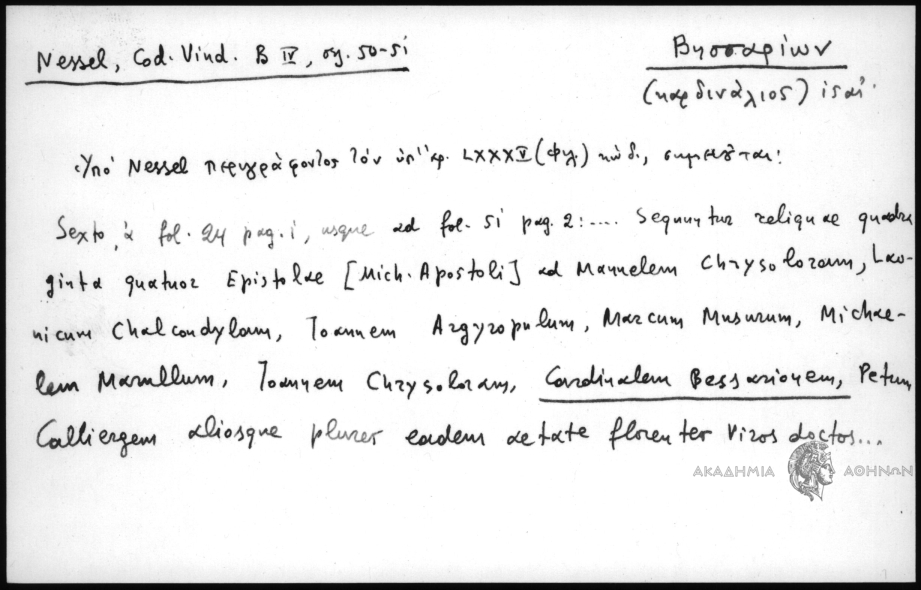 Nessel, Cod. Vind. B IV, σγ. 50-51
Βησσαρίων
(καρδινάλιος) ισαί·
Ὑπό Nessel περιγράφοντος τόν ὑπ' ἀρ. LXXXV (φιλ) κώδ., σημειοῦται:
Sexto, à fol. 24 pag. 1, usque ad fol. 51 pag. 2: .... Sequuntur reliquae quadra
ginta quatuor Epistolae [Mich. Apostoli] ad Manuelem Chrysoloram, Lao-
nicum Chalcondylam, Ioannem Argyropulum, Marcum Musurum, Michae-
lem Marullum, Ioannem Chrysoloram, Cardinalem Bessarionem, Petrum
Calliergem aliosque plures eadem aetate florentes viros doctos...
ΑΚΑΔΗΜΙΑ ΑΘΗΝΩΝ